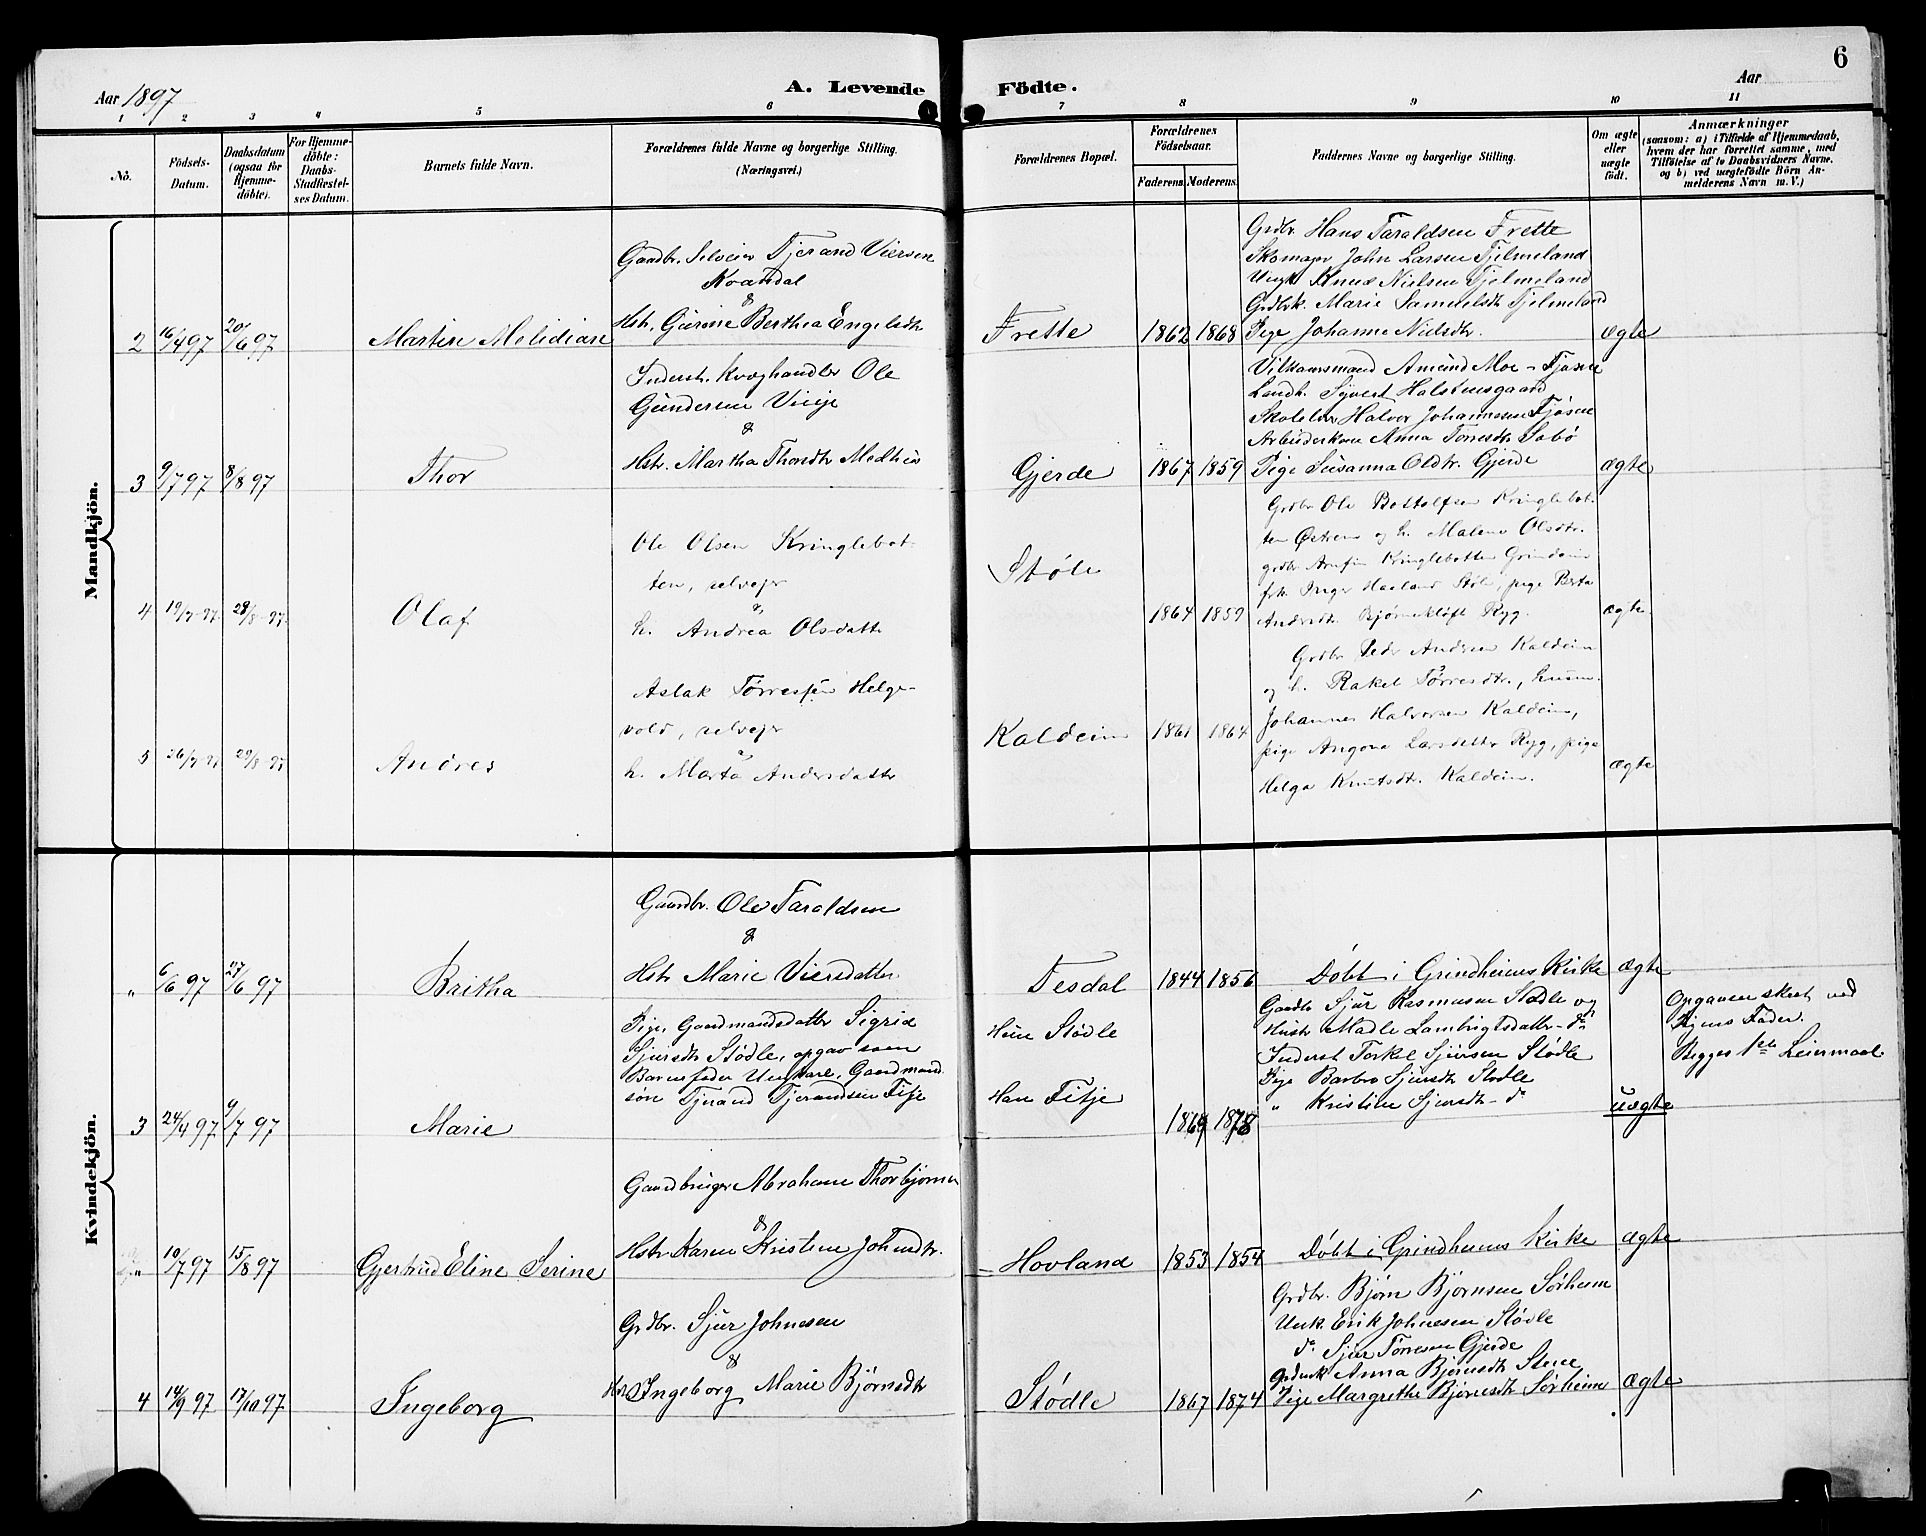 6
Aar 1897
A. Levende Födte.
Aar
1 2 3 4 5 6 7 8 9 10 11
No.
Födsels-
Datum.
Daabsdatum
(ogsaa for
Hjemme-
döbte).
For Hjemme-
döbte:
Daabs-
Stadfæstel-
ses Datum.
Barnets fulde Navn.
Forældrenes fulde Navne og borgerlige Stilling.
(Næringsvei.)
Forældrenes Bopæl.
Forældrenes
Födselsaar.
Faderens. Moderens.
Faddernes Navne og borgerlige Stilling.
Om ægte
eller
uægte
födt.
Anmærkninger
(saasom: a) i Tilfælde af Hjemmedaab,
hvem der har forrettet samme, med
Tilföielse af to Daabsvidners Navne.
og b) ved uægtefödte Börn An-
melderens Navn m.V.)
Mandkjön.
2 16/4 97 20/6 97
Martin Melidian
Gaardbr. Selveier Tjerand Viersen
Kvandal
&
Hstr. Gurine Berthea Engelsdtr
Frette
1862 1868
Grdbr. Hans Taraldsen Frette
Skomager John Larsen Fjelmeland
Ungk Knud Nielsen Fjelmeland
Grdbk. Marie Samuelsdtr Fjelmeland
Pige Johanne Nielsdtr.
ægte
3 9/7 97 8/8 97
Thor
Inderst. Kvæghandler Ole
Gundersen Vierje
&
Hstr. Martha Thorsdtr Medhus
Gjerde
1867 1859
Vilkaarsmand Amund Moe - Fjøsne
Landh. Syvert Halstensgaard
Skolelærer Halvor Johannesen Fjøsne
Arbeiderkone Anna Torresdtr Sabø
Pige Susanna Oldtr. Gjerde
ægte
4 19/7-97 28/8-97
Olaf
Ole Olsen Kringlebot-
ten, selvejr
&
h. Andrea Olsdattr
Støle
1864 1859
Grdbr Ole Bottolfsen Kringlebot-
ten Østrem og h. Malene Olsdtr.
grdbr Arnfin Kringlebotten Grindeim
frk. Inger Havland Støle, pige Berta
Andersdtr. Bjørnekløft Ryg.
ægte
5 26/7-97 29/8-97
Andres
Aslak Tørressen Helge-
vold, selvejr
&
h. Marta Andersdattr
Kaldeim
1861 1864
Grdbr Peder Andersen Kaldeim
og h. Rakel Tørresdtr., husm.
Johannes Halvorsen Kaldeim,
pige Angona Larsdattr Ryg, pige
Helga Knutsdtr. Kaldeim.
ægte
Kvindekjön.
" 6/6 97 27/6 97
Britha
Gaardbr. Ole Taraldsen
&
Hstr Marie Viersdatter
Tesdal
1844 1856
Døbt i Grindheims Kirke
ægte
3 24/4 97 9/7 97
Marie
Pige, Gaardmandsdatter Sigrid
Sjursdtr Stødle, opgav som
Barnefader Ungkarl, Gaardmand
søn Tjerand Tjerandsen Fitje
Hun Stødle
Han Fitje
1869 1878
Gaardbr Sjur Rasmusen Stødle og
Hustr Madle Lambrigtsdatter - do
Inderst Torkel Sjursen Stødle
Pige Barbro Sjursdtr Stødle
" Kristine Sjursdtr - do
uægte
Opgaven skeet ved
Pigens Fader.
Begges 1ste Leiermaal.
" 10/7 97 15/8 97
Gjertrud Eline Serine
Gaardbruger Abraham Thorbjørnsen
&
Hstr Karen Kristine Johnsdtr.
Hovland
1853 1854
Døbt i Grindheims Kirke
ægte
4 14/9 97 17/10 97
Ingeborg
Grdbr. Sjur Johnesen
&
Hstr Ingeborg Marie Bjørnsdtr
Stødle
1867 1874
Grdbr. Bjørn Bjørnsen Sørheim
Unk. Erik Johnesen Stødle
do Sjur Torresen Gjerde
Grdbrk Anna Bjørnsdtr Stene
Pige Margrethe Bjørnsdtr Sørheim
ægte